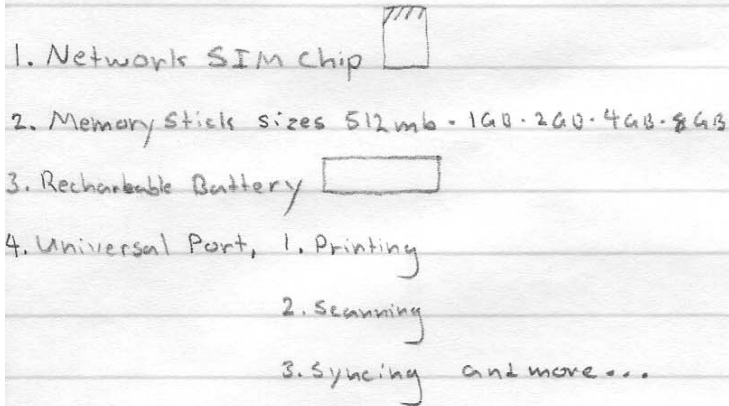 1. Network SIM chip
2. Memory Stick sizes 512mb - 1GB - 2GB - 4GB - 8GB
3. Recharbable Battery
4. Universal Port, 1. Printing
2. Scanning
3. Syncing and more...